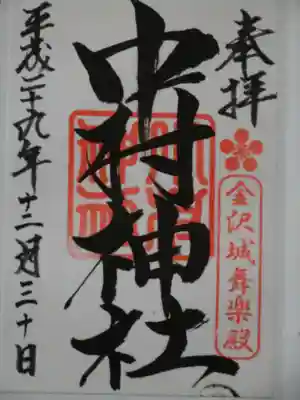 奉拝
金沢城舞楽殿
中村神社
平成二十九年十二月三十日